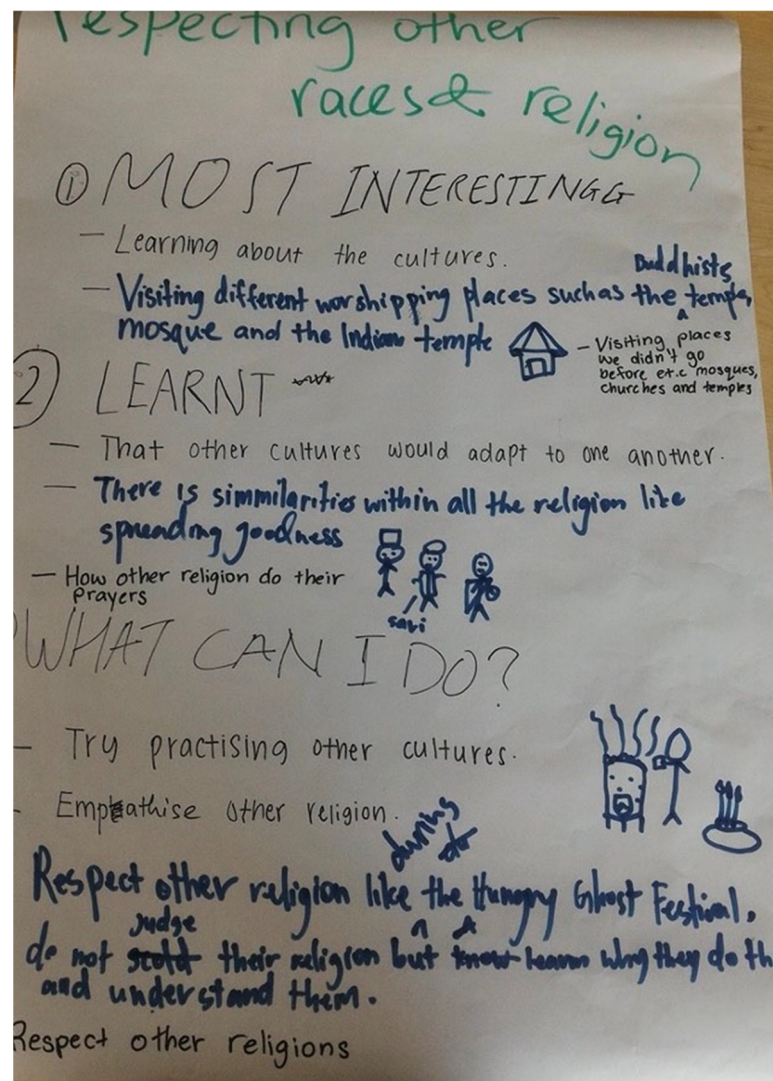 respecting other
races & religion
① MOST INTERESTINGG
- Learning about the cultures.
- Visiting different worshipping places such as the Buddhists temple,
mosque and the Indian temple
- Visiting places
we didn't go
before et.c mosques,
churches and temples
2 LEARNT
- That other cultures would adapt to one another.
- There is simmilarities within all the religion like
spreading goodness
- How other religion do their
Prayers
sari
WHAT CAN I DO?
- Try practising other cultures.
- Empathise other religion.
Respect other religion like during the Hungry Ghost Festival.
do not judge their religion but learn why they do th
and understand them.
Respect other religions